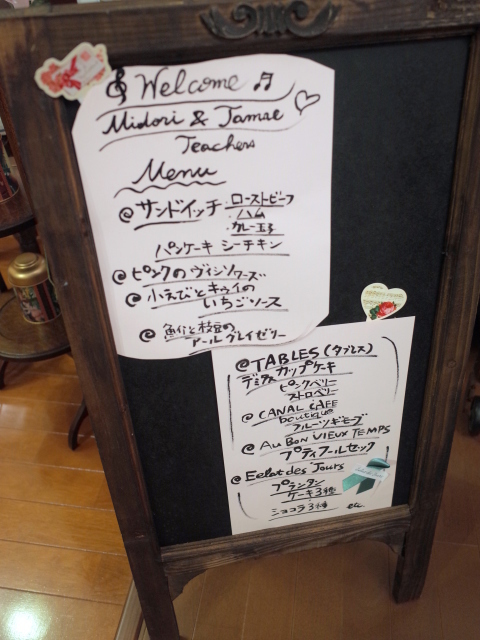 Welcome
Midori & Tamae
Teachers
Menu
@ サンドイッチ ・ローストビーフ
・ハム
・カレー玉子
パンケーキ シーチキン
@ ピンクのヴィシソワーズ
@ 小えびとキウイの
いちごソース
@ 魚介と枝豆の
アールグレイゼリー
@ TABLES (タブレス)
カップケーキ
ピンクベリー
ストロベリー
@ CANAL CAFE
boutique
フルーツギモーブ
@ AU BON VIEUX TEMPS
プティフールセック
@ Eclat des Jours
プランタン
ケーキ3種
ショコラ3種 etc.